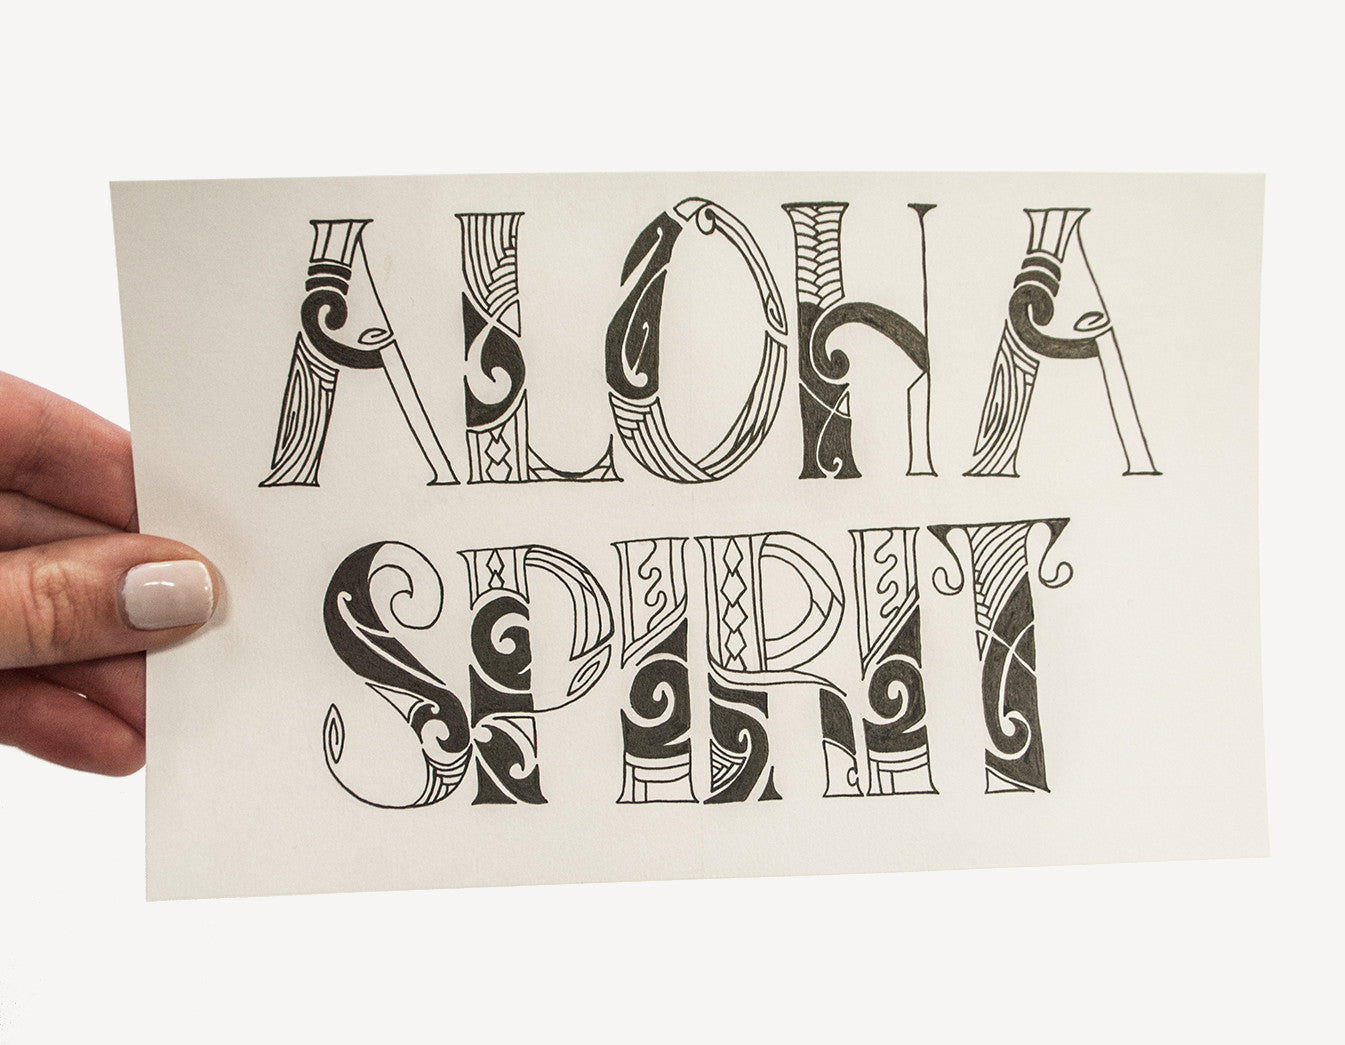 ALOHA
SPIRIT